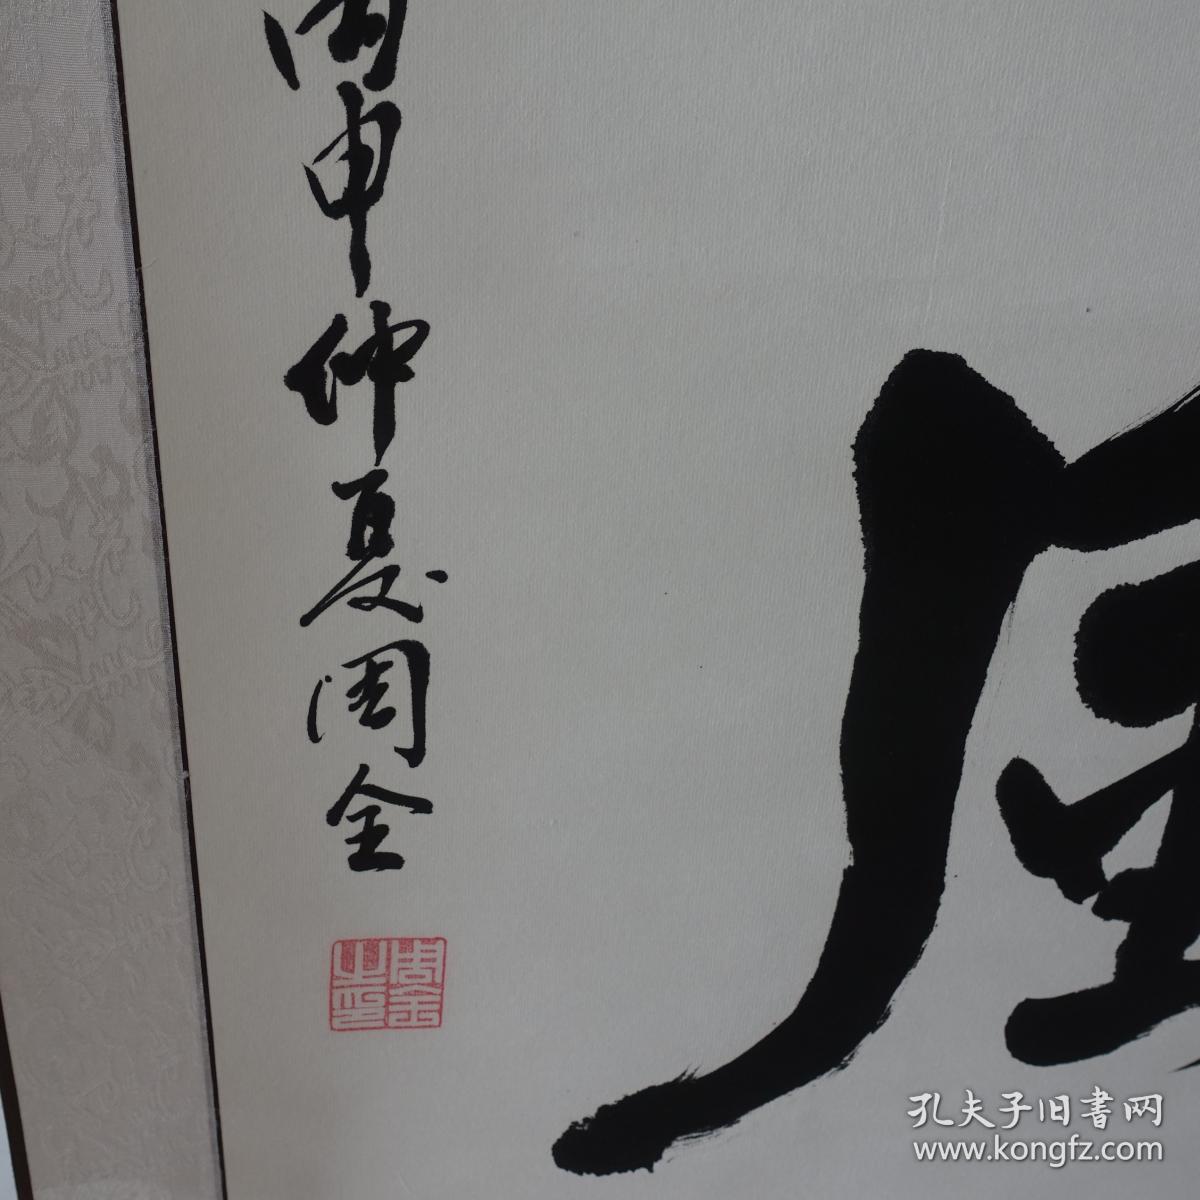 風
丙申仲夏周全
周全之印
孔夫子旧書网
www.kongfz.com